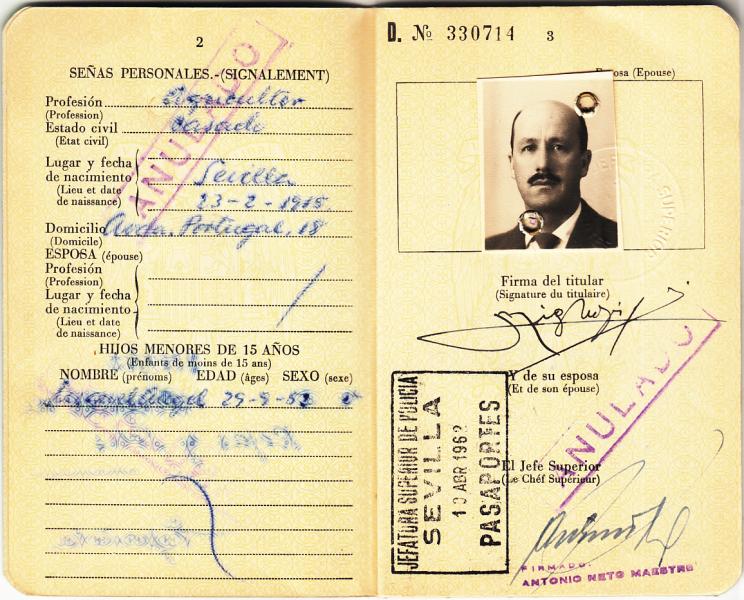 2
SEÑAS PERSONALES.-(SIGNALEMENT)
Profesión Agricultor
(Profession)
Estado civil Casado
(Etat civil)
Lugar y fecha
de nacimiento Sevilla
(Lieu et date
de naissance) 23-2-1915
Domicilio Avda. Portugal, 18
(Domicile)
ESPOSA (épouse)
Profesión
(Profession)
Lugar y fecha
de nacimiento
(Lieu et date
de naissance)
HIJOS MENORES DE 15 AÑOS
(Enfants de moins de 15 ans)
NOMBRE (prénoms) EDAD (âges) SEXO (sexe)
29-9-52
ANULADO
D. No 330714 3
(Epouse)
Firma del titular
(Signature du titulaire)
Y de su esposa
(Et de son épouse)
JEFATURA SUPERIOR DE POLICIA
SEVILLA
10 ABR 1962
PASAPORTES
ANULADO
El Jefe Superior
(Le Chéf Supérieur)
FIRMADO:
ANTONIO NETO MAESTRE